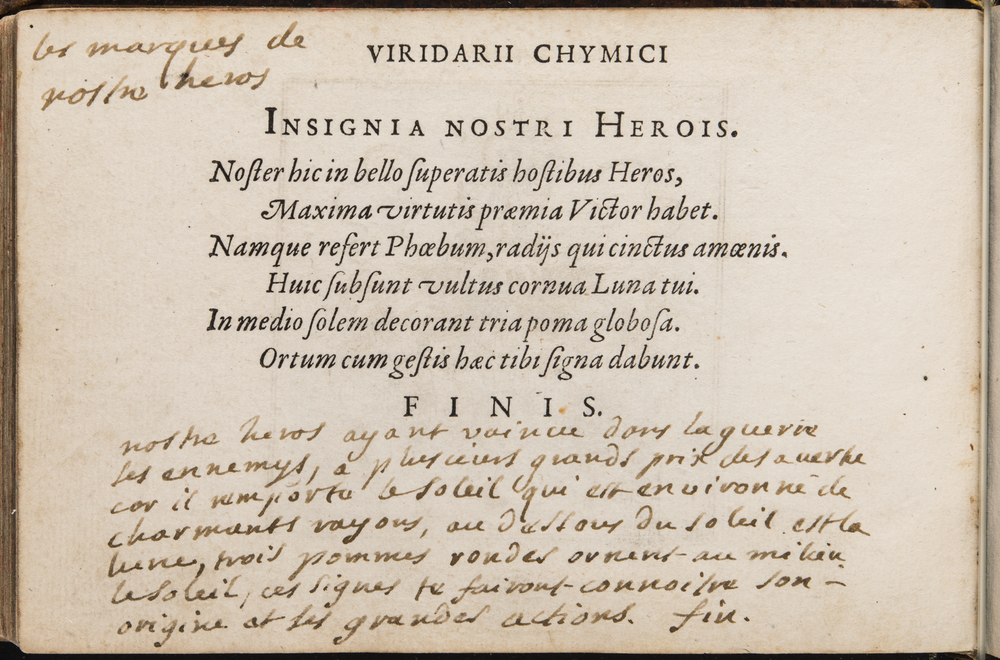 les marques de
nostre heros
VIRIDARII CHYMICI
INSIGNIA NOSTRI HEROIS.
Noſter hic in bello ſuperatis hoſtibus Heros,
Maxima virtutis præmia Victor habet.
Namque refert Phœbum, radijs qui cinctus amœnis.
Huic ſubſunt vultus cornua Luna tui.
In medio ſolem decorant tria poma globoſa.
Ortum cum geſtis hæc tibi ſigna dabunt.
FINIS.
nostre heros ayant vaincu dans la guerre
ses ennemys, a plusieurs grands prix de sa vertu
car il remporte le soleil qui est environné de
charmants rayons, au dessous du soleil est la
lune, trois pommes rondes ornent au milieu
le soleil, ces signes te fairont connoitre son –
origine et ses grandes actions. fin.